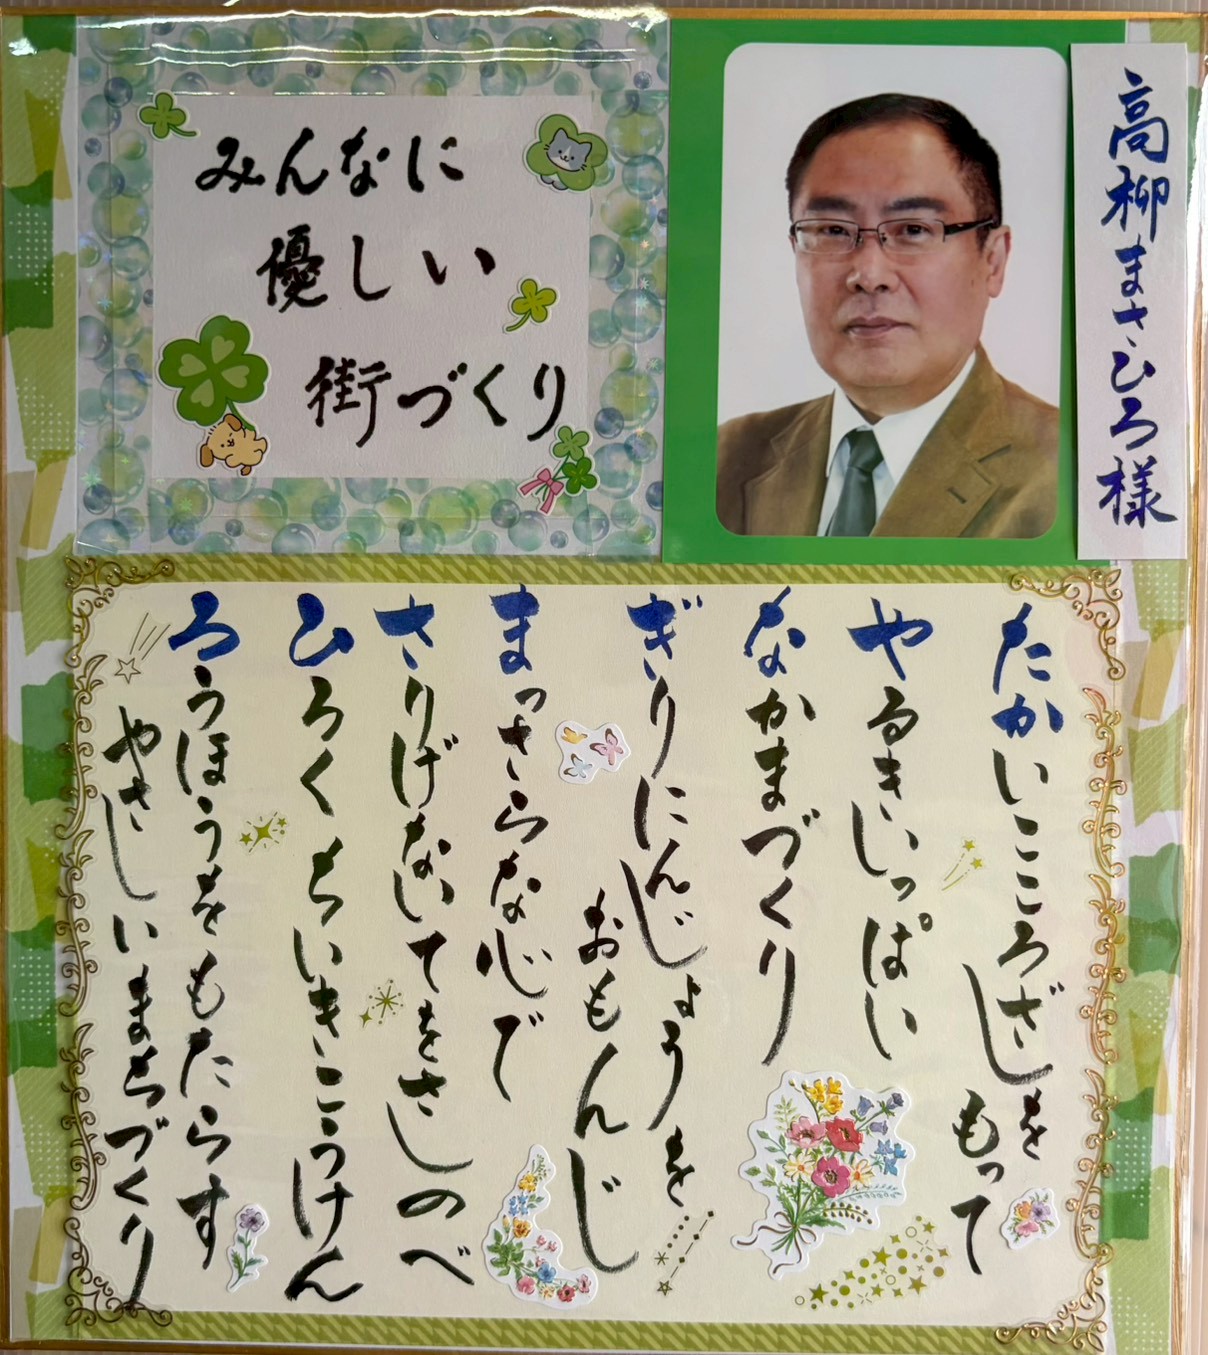 みんなに
優しい
街づくり
高柳まさひろ様
たかいこころざしを
もって
やるきいっぱい
なかまづくり
ぎりにんじょうを
おもんじ
まっさらな心で
さりげないてをさしのべ
ひろくちいきこうけん
ろうほうをもたらす
やさしいまちづくり